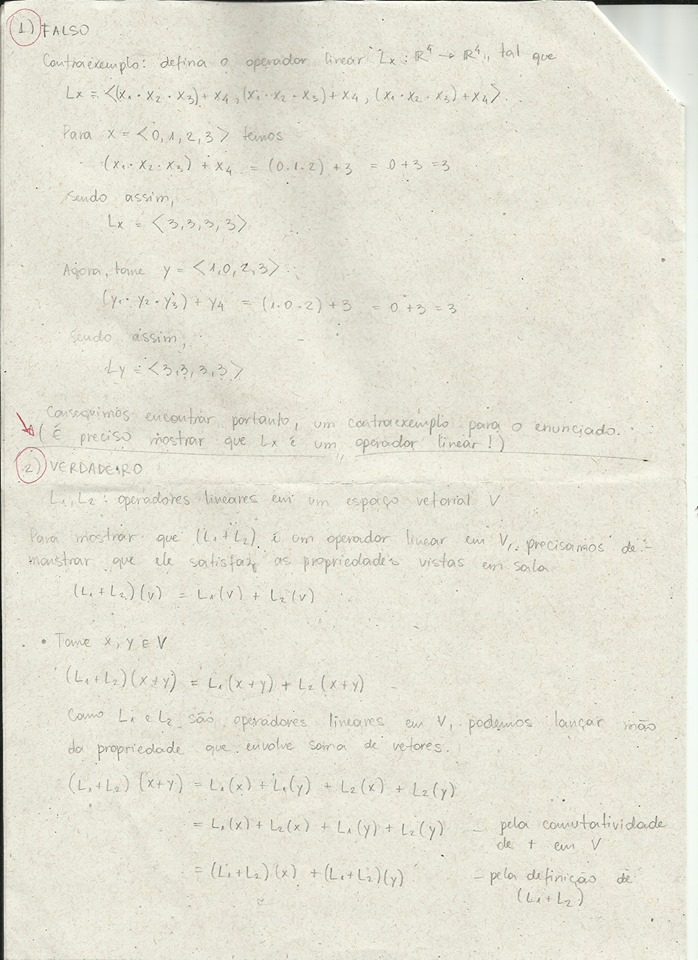 1) FALSO
Contraexemplo: defina o operador linear Lx : ℝ⁴ → ℝ⁴, tal que
Lx = <(x₁·x₂·x₃)+x₄, (x₁·x₂·x₃)+x₄, (x₁·x₂·x₃)+x₄>.
Para x = <0,1,2,3> temos
(x₁·x₂·x₃) + x₄ = (0.1.2) + 3 = 0+3 = 3
Sendo assim,
Lx = <3,3,3,3>
Agora, tome y = <1,0,2,3>.
(y₁·y₂·y₃) + y₄ = (1.0.2) + 3 = 0+3 = 3
Sendo assim,
Ly = <3,3,3,3>
Conseguimos encontrar portanto, um contraexemplo para o enunciado.
(É preciso mostrar que Lx é um operador linear!)
2) VERDADEIRO
L₁, L₂ : operadores lineares em um espaço vetorial V
Para mostrar que (L₁+L₂) é um operador linear em V, precisamos de-
monstrar que ele satisfaz as propriedades vistas em sala
(L₁+L₂)(v) = L₁(v) + L₂(v)
• Tome x, y ∈ V
(L₁+L₂)(x+y) = L₁(x+y) + L₂(x+y)
Como L₁ e L₂ são operadores lineares em V, podemos lançar mão
da propriedade que envolve soma de vetores.
(L₁+L₂)(x+y) = L₁(x) + L₁(y) + L₂(x) + L₂(y)
= L₁(x) + L₂(x) + L₁(y) + L₂(y) – pela comutatividade
de + em V
= (L₁+L₂)(x) + (L₁+L₂)(y) – pela definição de
(L₁+L₂)